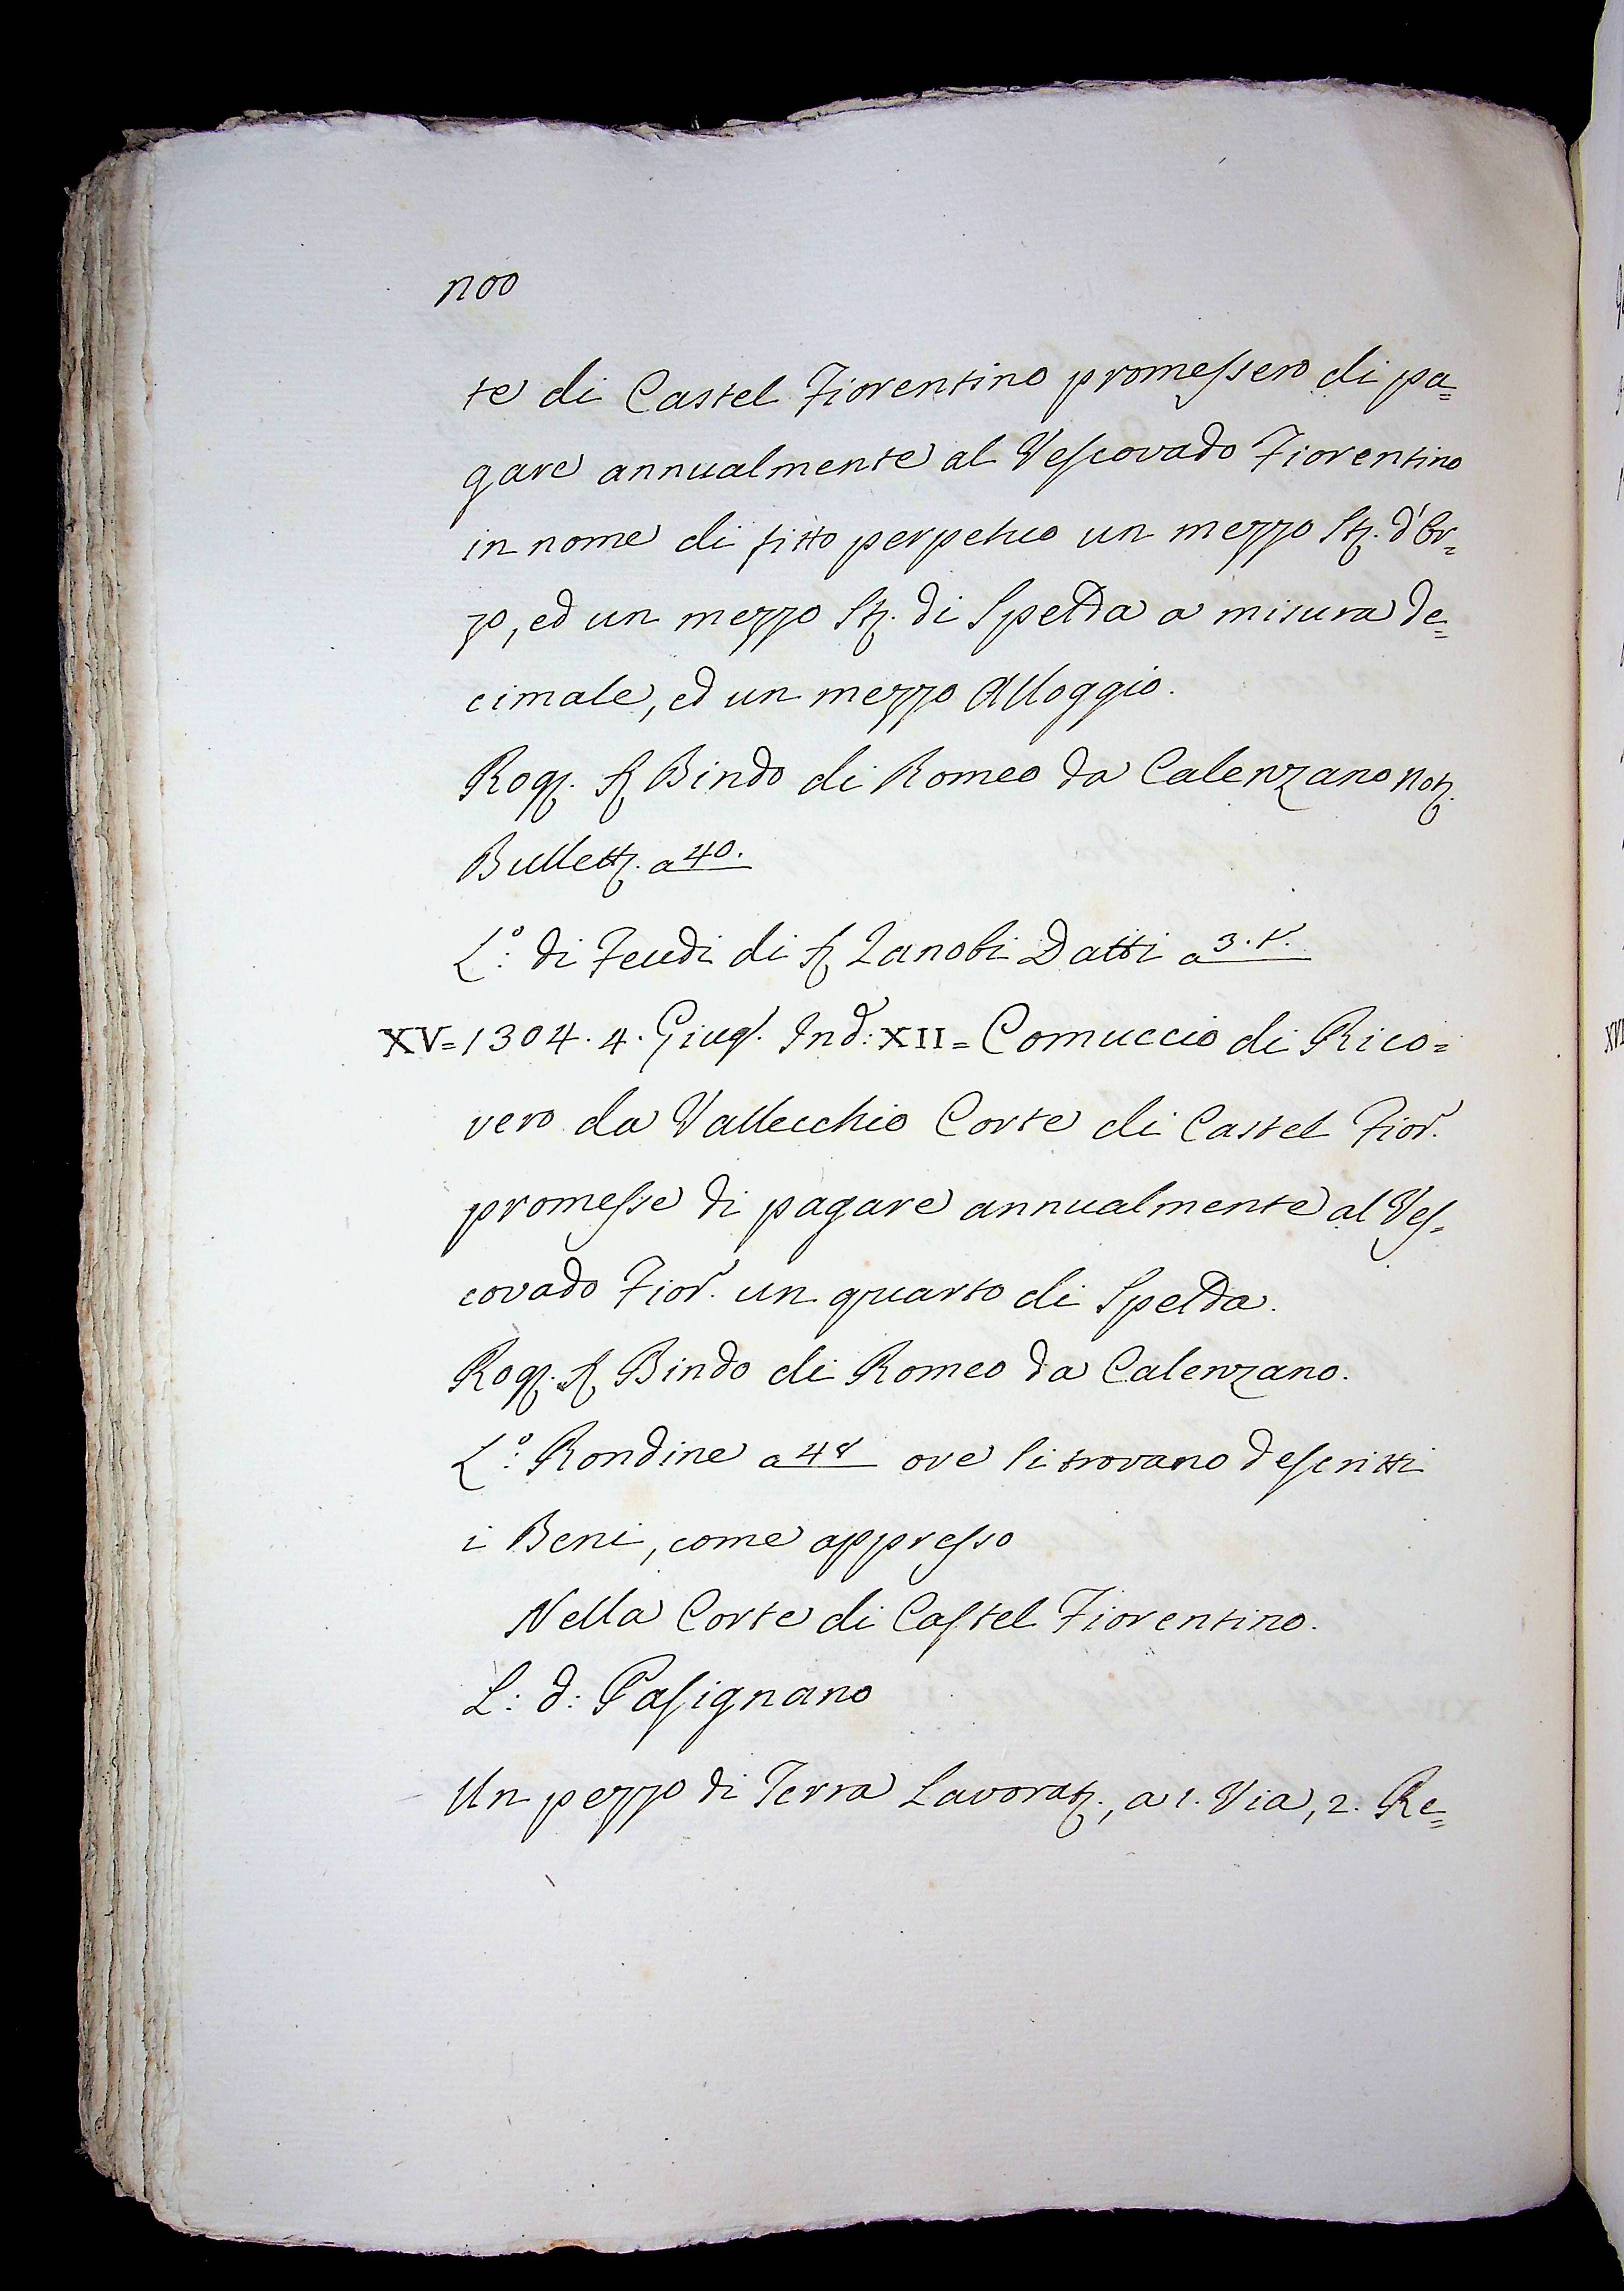 noo
te di Castel Fiorentino promessero di pa=
gare annualmente al Vescovado Fiorentino
in nome di fitto perpetuo un mezzo St. d'Or=
zo, ed un mezzo St. di Spelda a misura de=
cimale, ed un mezzo Alloggio.
Rog. S. Bindo di Romeo da Calenzano Not.
Bullett. a 40.
L.º di Feudi di S. Zanobi Datti a 3. t.
XV = 1304. 4. Giug. Ind: XII = Comuccio di Rico=
vero da Vallecchio Corte di Castel Fior.
promesse di pagare annualmente al Ves=
covado Fior. un quarto di Spelda.
Rog. S. Bindo di Romeo da Calenzano.
L.º Rondine a 48 ove si trovano descritti
i Beni, come appresso
Nella Corte di Castel Fiorentino.
L: d: Pasignano
Un pezzo di Terra Lavorat., a 1. Via, 2. Re=